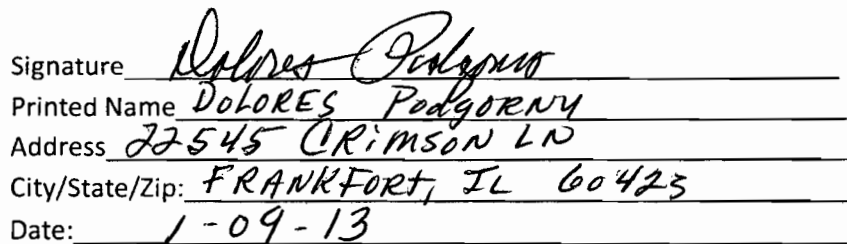 Signature Dolores Podgorny
Printed Name DOLORES PODGORNY
Address 22545 CRIMSON LN
City/State/Zip: FRANKFORT, IL 60423
Date: 1-09-13